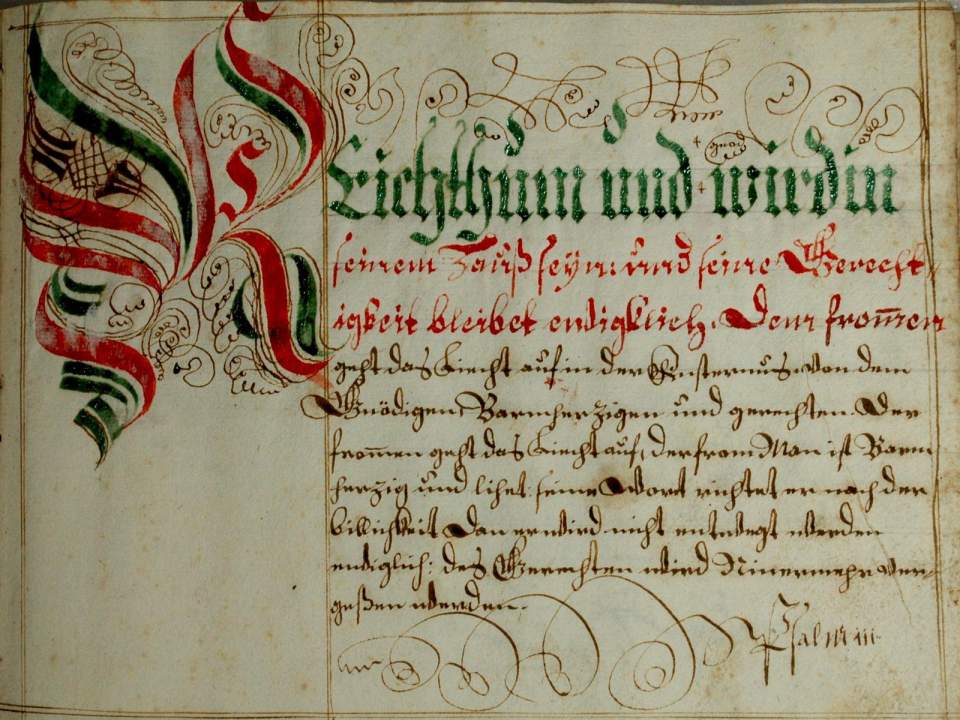 Reichthum und wird in
seinem Hauß seyn: und seine Gerecht,,
igkeit bleibet ewigklich. Dem from̄en
geht das Liecht auf in der Finsternus, von dem
Gnödigen, Barmherzigen und gerechten. Der
from̄en geht das Liecht auf, der from Man ist Barm
herzig und lihet: seine Wort richtet er nach der
billichkeit Dan er wird nicht entwegt werden
ewiglich: des Gerechten wird Nimermehr ver,,
geßen werden.
Psalm